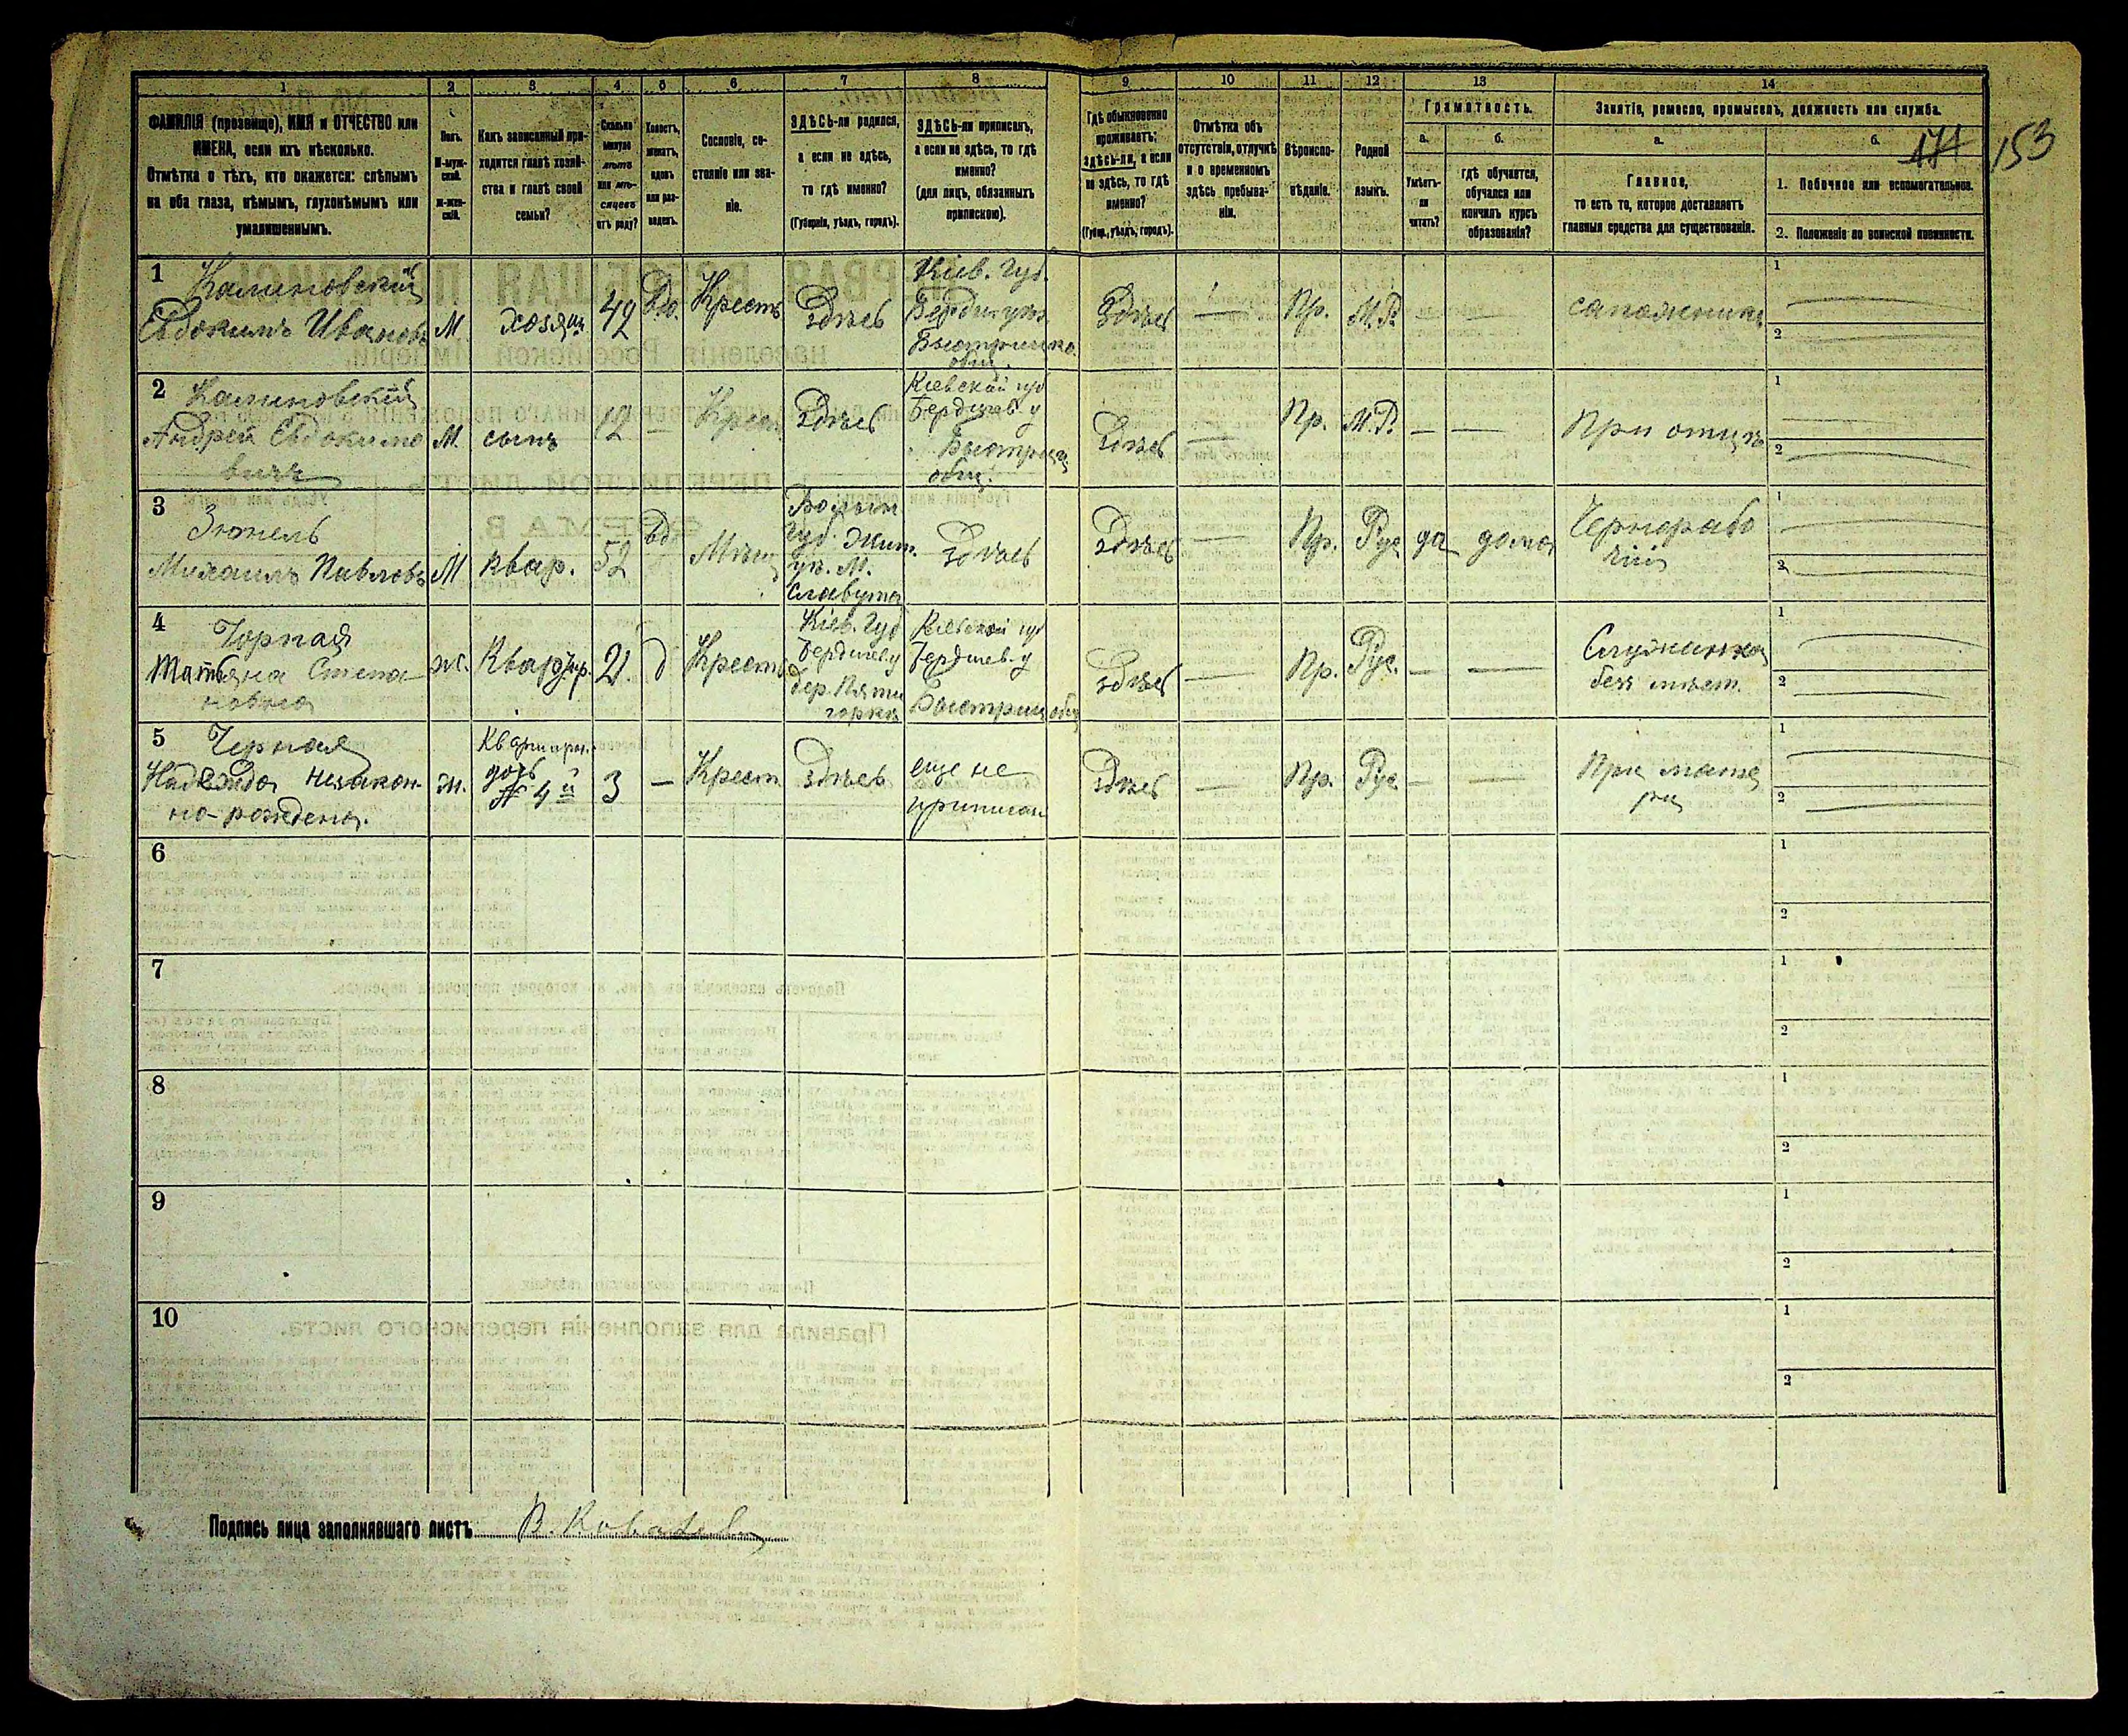 1 2 3 4 5 6 7 8 9 10 11 12 13 14
ФАМИЛІЯ (прозвище), ИМЯ и ОТЧЕСТВО или
ИМЕНА, если ихъ нѣсколько.
Отмѣтка о тѣхъ, кто окажется: слѣпымъ
на оба глаза, нѣмымъ, глухонѣмымъ или
умалишеннымъ.
Полъ.
М-муж-
ской.
Ж-жен-
скій.
Какъ записанный при-
ходится главѣ хозяй-
ства и главѣ своей
семьи?
Сколько
минуло
лѣтъ
или мѣ-
сяцевъ
отъ роду?
Холостъ,
женатъ,
вдовъ
или раз-
веденъ.
Сословіе, со-
стояніе или зва-
ніе.
ЗДѢСЬ-ли родился,
а если не здѣсь,
то гдѣ именно?
(Губернія, уѣздъ, городъ).
ЗДѢСЬ-ли приписанъ,
а если не здѣсь, то гдѣ
именно?
(для лицъ, обязанныхъ
припискою).
Гдѣ обыкновенно
проживаетъ:
здѣсь-ли, а если
не здѣсь, то гдѣ
именно?
(Губерн., уѣздъ, городъ).
Отмѣтка объ
отсутствіи, отлучкѣ
и о временномъ
здѣсь пребыва-
ніи.
Вѣроиспо-
вѣданіе.
Родной
языкъ.
Грамотность.
а.
Умѣетъ-
ли
читать?
б.
гдѣ обучается,
обучался или
кончилъ курсъ
образованія?
Занятіе, ремесло, промыселъ, должность или служба.
а.
Главное,
то есть то, которое доставляетъ
главныя средства для существованія.
б.
1. Побочное или вспомогательное.
2. Положеніе по воинской повинности.
174 153
1
Калиновскій
Евдокимъ Ивановъ
М.
хозяин
42
вд.
Крест
Здѣсь
Кіев. Губ.
Бердич. уѣз.
общ.
Здѣсь
—
Пр.
М.Р.
—
—
сапожникъ
1
2
2
Калиновскій
Андрей Евдокимо
вичъ
М.
сынъ
12
—
Крест
Здѣсь
Кіевской губ
Бердичев. у
Быстрицк
общ.
Здѣсь
—
Пр.
М.Р.
—
—
При отцѣ
1
2
3
Михаилъ Павловъ
М
квар.
52
вд.
Мѣщ
Волын
Губ. Жит.
уѣ. М.
Славута
Здѣсь
Здѣсь
—
Пр.
Рус
да
дома
Чернорабо
чій
1
2
4
Чорная
Татьяна Степа
новна
ж.
Квартир.
21.
д
Крест
Кіев. Губ
Бердичев. у
дер. Пяти
горка
Кіевской губ
Бердичев. у
Быстрицк общ
Здѣсь
—
Пр.
Рус.
—
—
Служанка
без мѣст.
1
2
5
Черная
Надежда незакон-
но-рождена.
ж.
Квартирн.
дочь
№ 4й
3
—
Крест
здѣсь
еще не
приписан
Здѣсь
—
Пр.
Рус
—
—
При мате
ри
1
2
6
1
2
7
1
2
8
1
2
9
1
2
10
1
2
Подпись лица заполнявшаго листъ